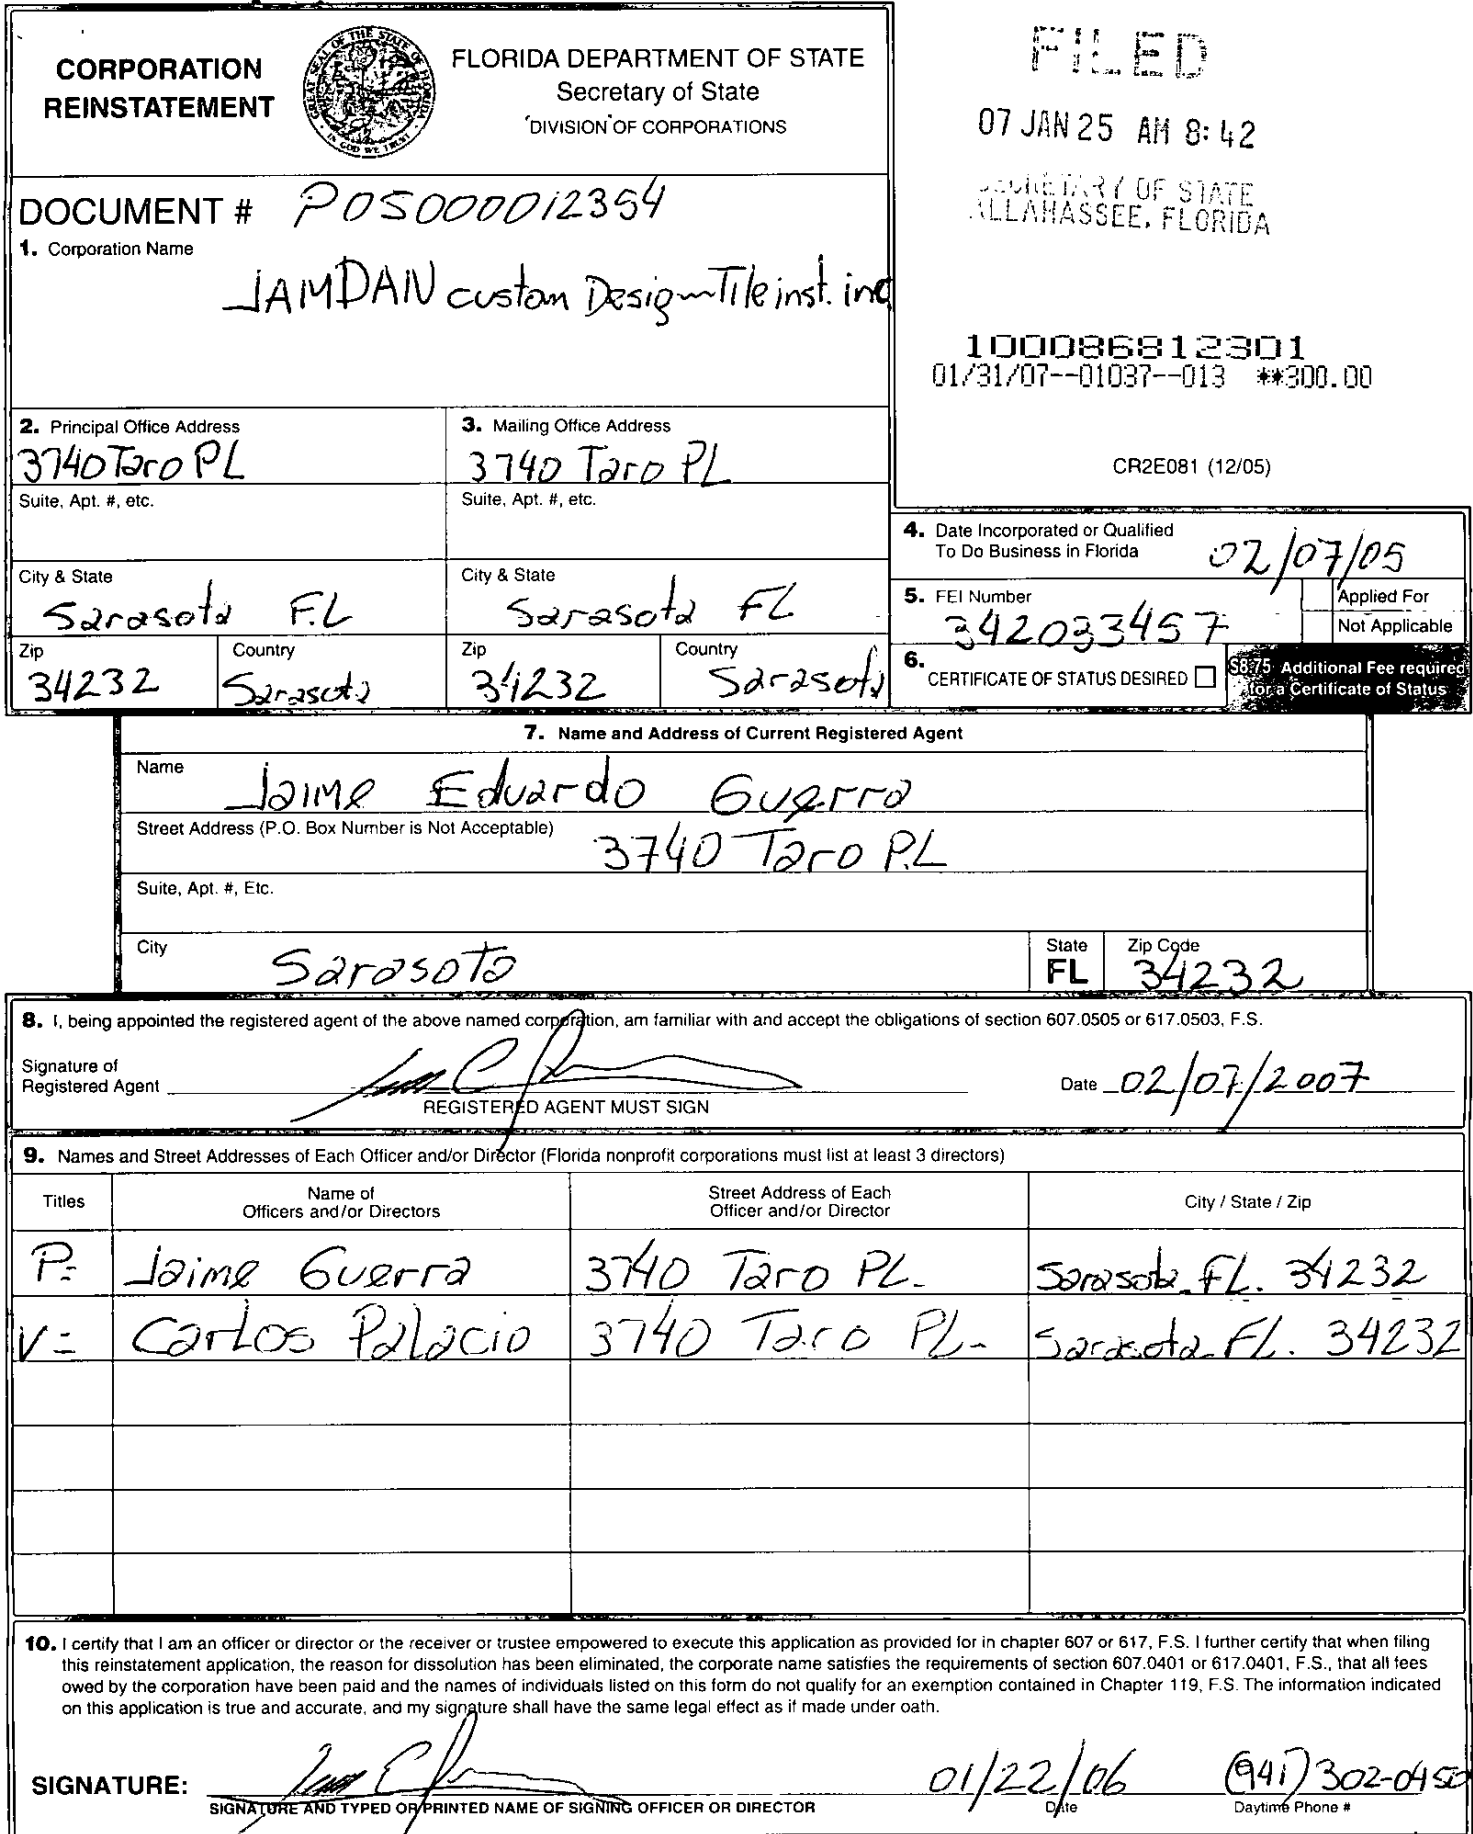 CORPORATION
REINSTATEMENT
FLORIDA DEPARTMENT OF STATE
Secretary of State
DIVISION OF CORPORATIONS
FILED
07 JAN 25 AM 8:42
SECRETARY OF STATE
ALLAHASSEE, FLORIDA
DOCUMENT # P05000012354
1. Corporation Name
JAMDAN custom Design Tile inst. inc
1000868 12301
01/31/07--01037--013 **300.00
CR2E081 (12/05)
2. Principal Office Address
3740 Taro PL
3. Mailing Office Address
3740 Taro PL
Suite, Apt. #, etc.
Suite, Apt. #, etc.
City & State
Sarasota F.L
City & State
Sarasota FL
Zip
34232
Country
Sarasota
Zip
34232
Country
Sarasota
4. Date Incorporated or Qualified
To Do Business in Florida 02/07/05
5. FEI Number
342033457
Applied For
Not Applicable
6. CERTIFICATE OF STATUS DESIRED
$8.75 Additional Fee required
for a Certificate of Status
7. Name and Address of Current Registered Agent
Name
Jaime Eduardo Guerra
Street Address (P.O. Box Number is Not Acceptable)
3740 Taro P.L
Suite, Apt. #, Etc.
City
Sarasota
State
FL
Zip Code
34232
8. I, being appointed the registered agent of the above named corporation, am familiar with and accept the obligations of section 607.0505 or 617.0503, F.S.
Signature of
Registered Agent
REGISTERED AGENT MUST SIGN
Date 02/07/2007
9. Names and Street Addresses of Each Officer and/or Director (Florida nonprofit corporations must list at least 3 directors)
Titles
Name of
Officers and/or Directors
Street Address of Each
Officer and/or Director
City / State / Zip
P= Jaime Guerra 3740 Taro PL- Sarasota FL. 34232
V= Carlos Palacio 3740 Taro PL- Sarasota FL. 34232
10. I certify that I am an officer or director or the receiver or trustee empowered to execute this application as provided for in chapter 607 or 617, F.S. I further certify that when filing
this reinstatement application, the reason for dissolution has been eliminated, the corporate name satisfies the requirements of section 607.0401 or 617.0401, F.S., that all fees
owed by the corporation have been paid and the names of individuals listed on this form do not qualify for an exemption contained in Chapter 119, F.S. The information indicated
on this application is true and accurate, and my signature shall have the same legal effect as if made under oath.
SIGNATURE:
01/22/06 (941) 302-0450
SIGNATURE AND TYPED OR PRINTED NAME OF SIGNING OFFICER OR DIRECTOR
Date
Daytime Phone #